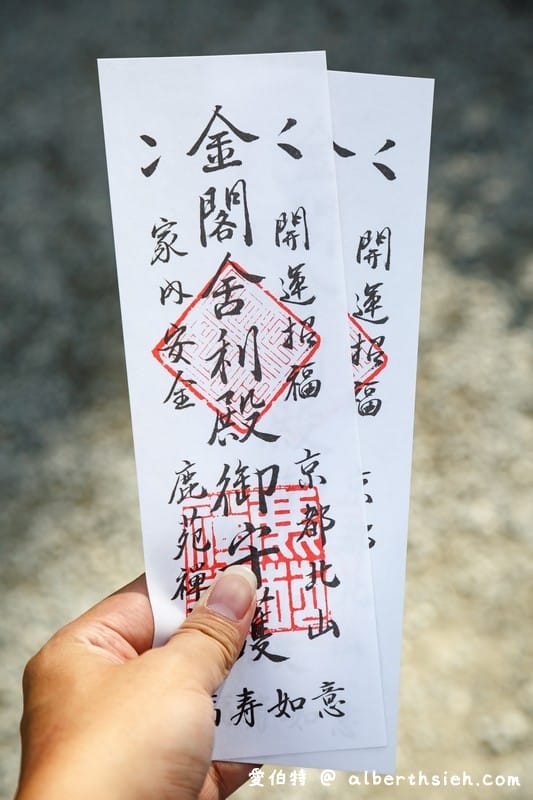 開運招福
京都北山
金閣舍利殿
御守護
家内安全
鹿苑禅
寿如意
開運招福
愛伯特 @ alberthsieh.com